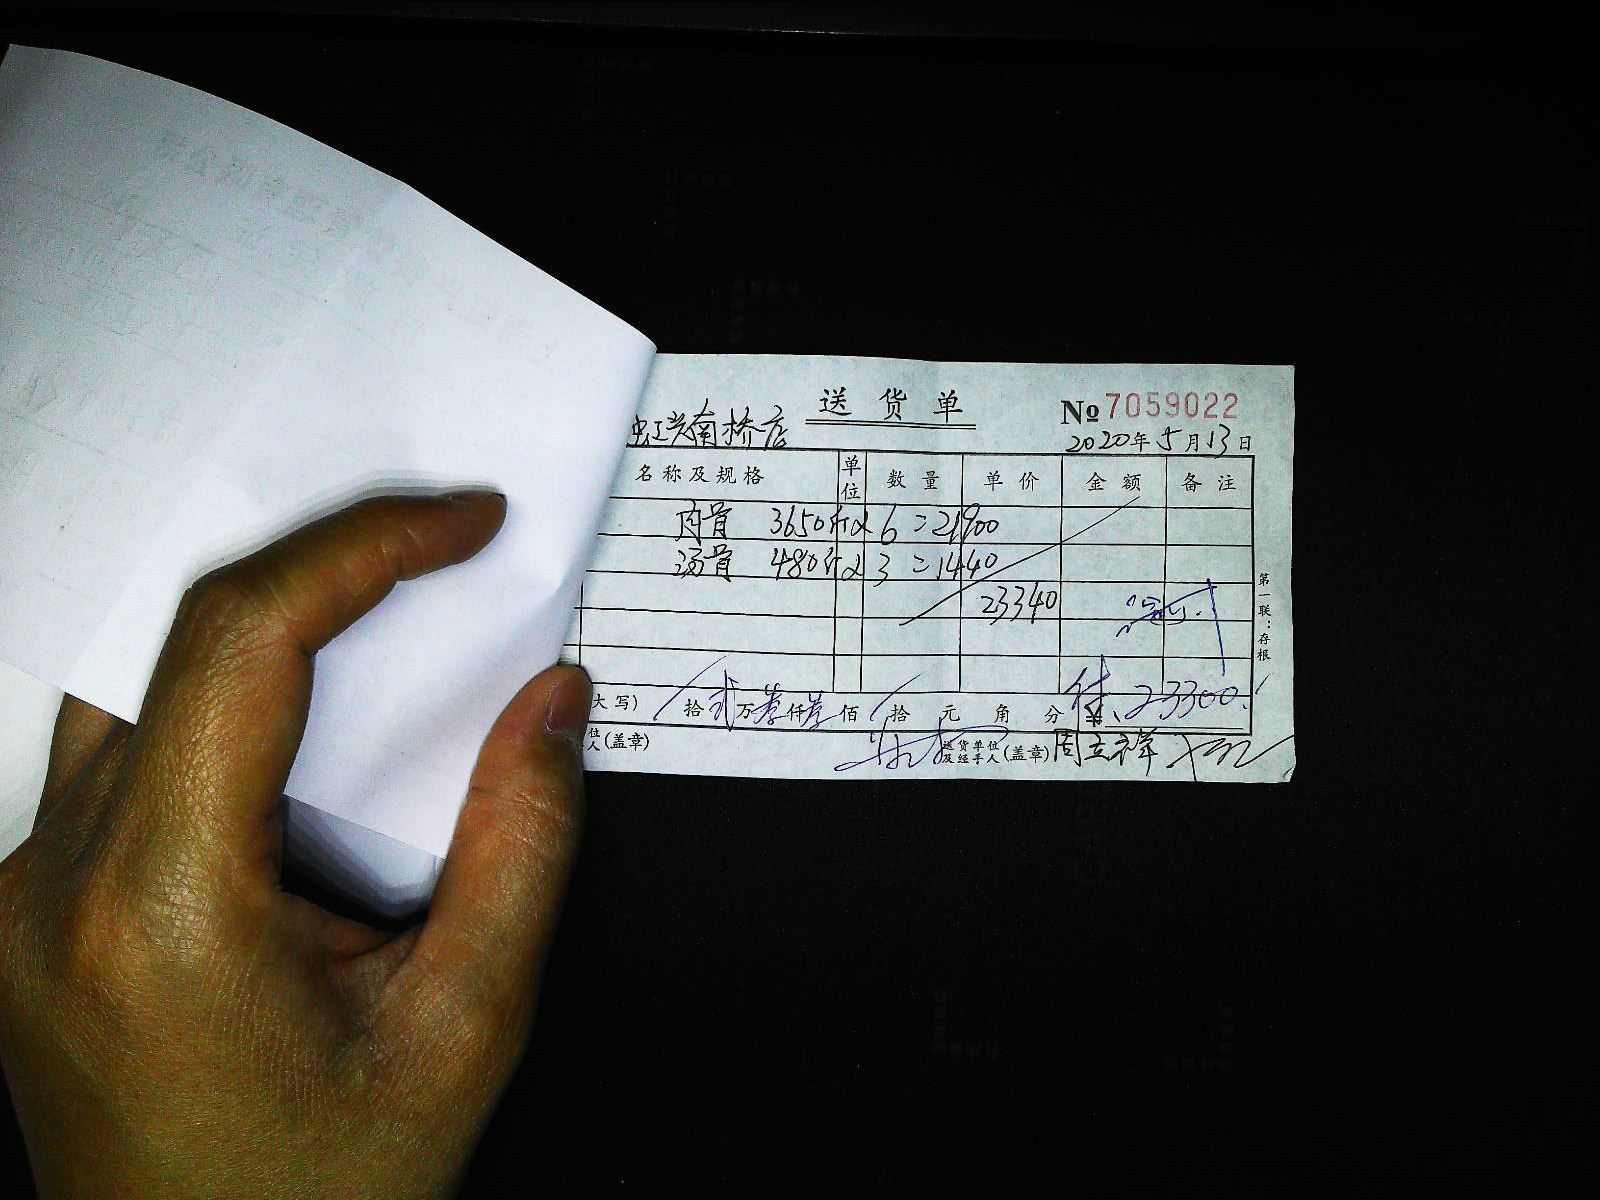 送货单
№ 7059022
虹兴南桥店
2020年5月13日
名称及规格 单位 数量 单价 金额 备注
肉骨 3650斤x 6 = 21900
汤骨 480斤x 3 = 1440
23340
第一联:存根
大写) 拾 弍 万 叁 仟 叁 佰 拾 元 角 分 ¥ 23300.
位人(盖章) 送货单位及经手人(盖章) 周立祥